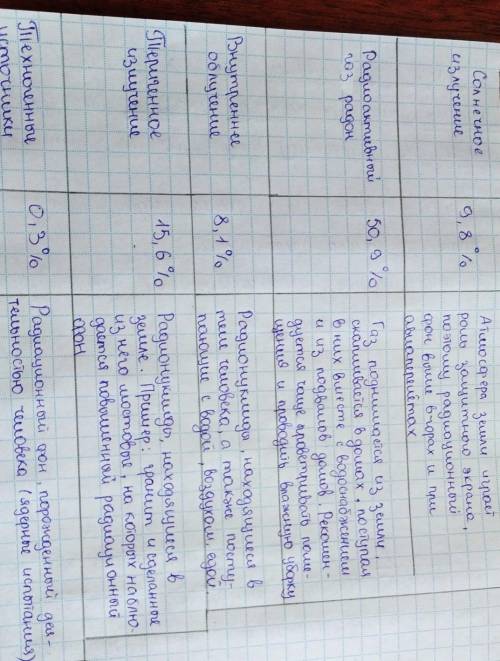 Солнечное
излучение
9,8%
Атмосфера земли играет
роль защитного экрана,
поэтому радиационный
фон выше в горах и при
авиаперелётах
Радиоактивный
газ радон
50,9%
Газ поднимается из земли,
скапливается в домах, поступая
в них вместе с водоснабжением
и из подвалов домов. Рекомен-
дуется чаще проветривать поме-
щения и проводить влажную уборку
Внутреннее
облучение
8,1%
Радионуклиды, находящиеся в
теле человека, а также посту-
пающие с водой, воздухом едой.
излучение
15,6%
Радионуклиды, находящиеся в
земле. Пример: гранит и сделанные
из него мостовые, на которых наблю-
дается повышенный радиационный
фон
Техногенные
источники
0,3%
Радиационный фон, порожденный дея-
тельностью человека (ядерные испытания)